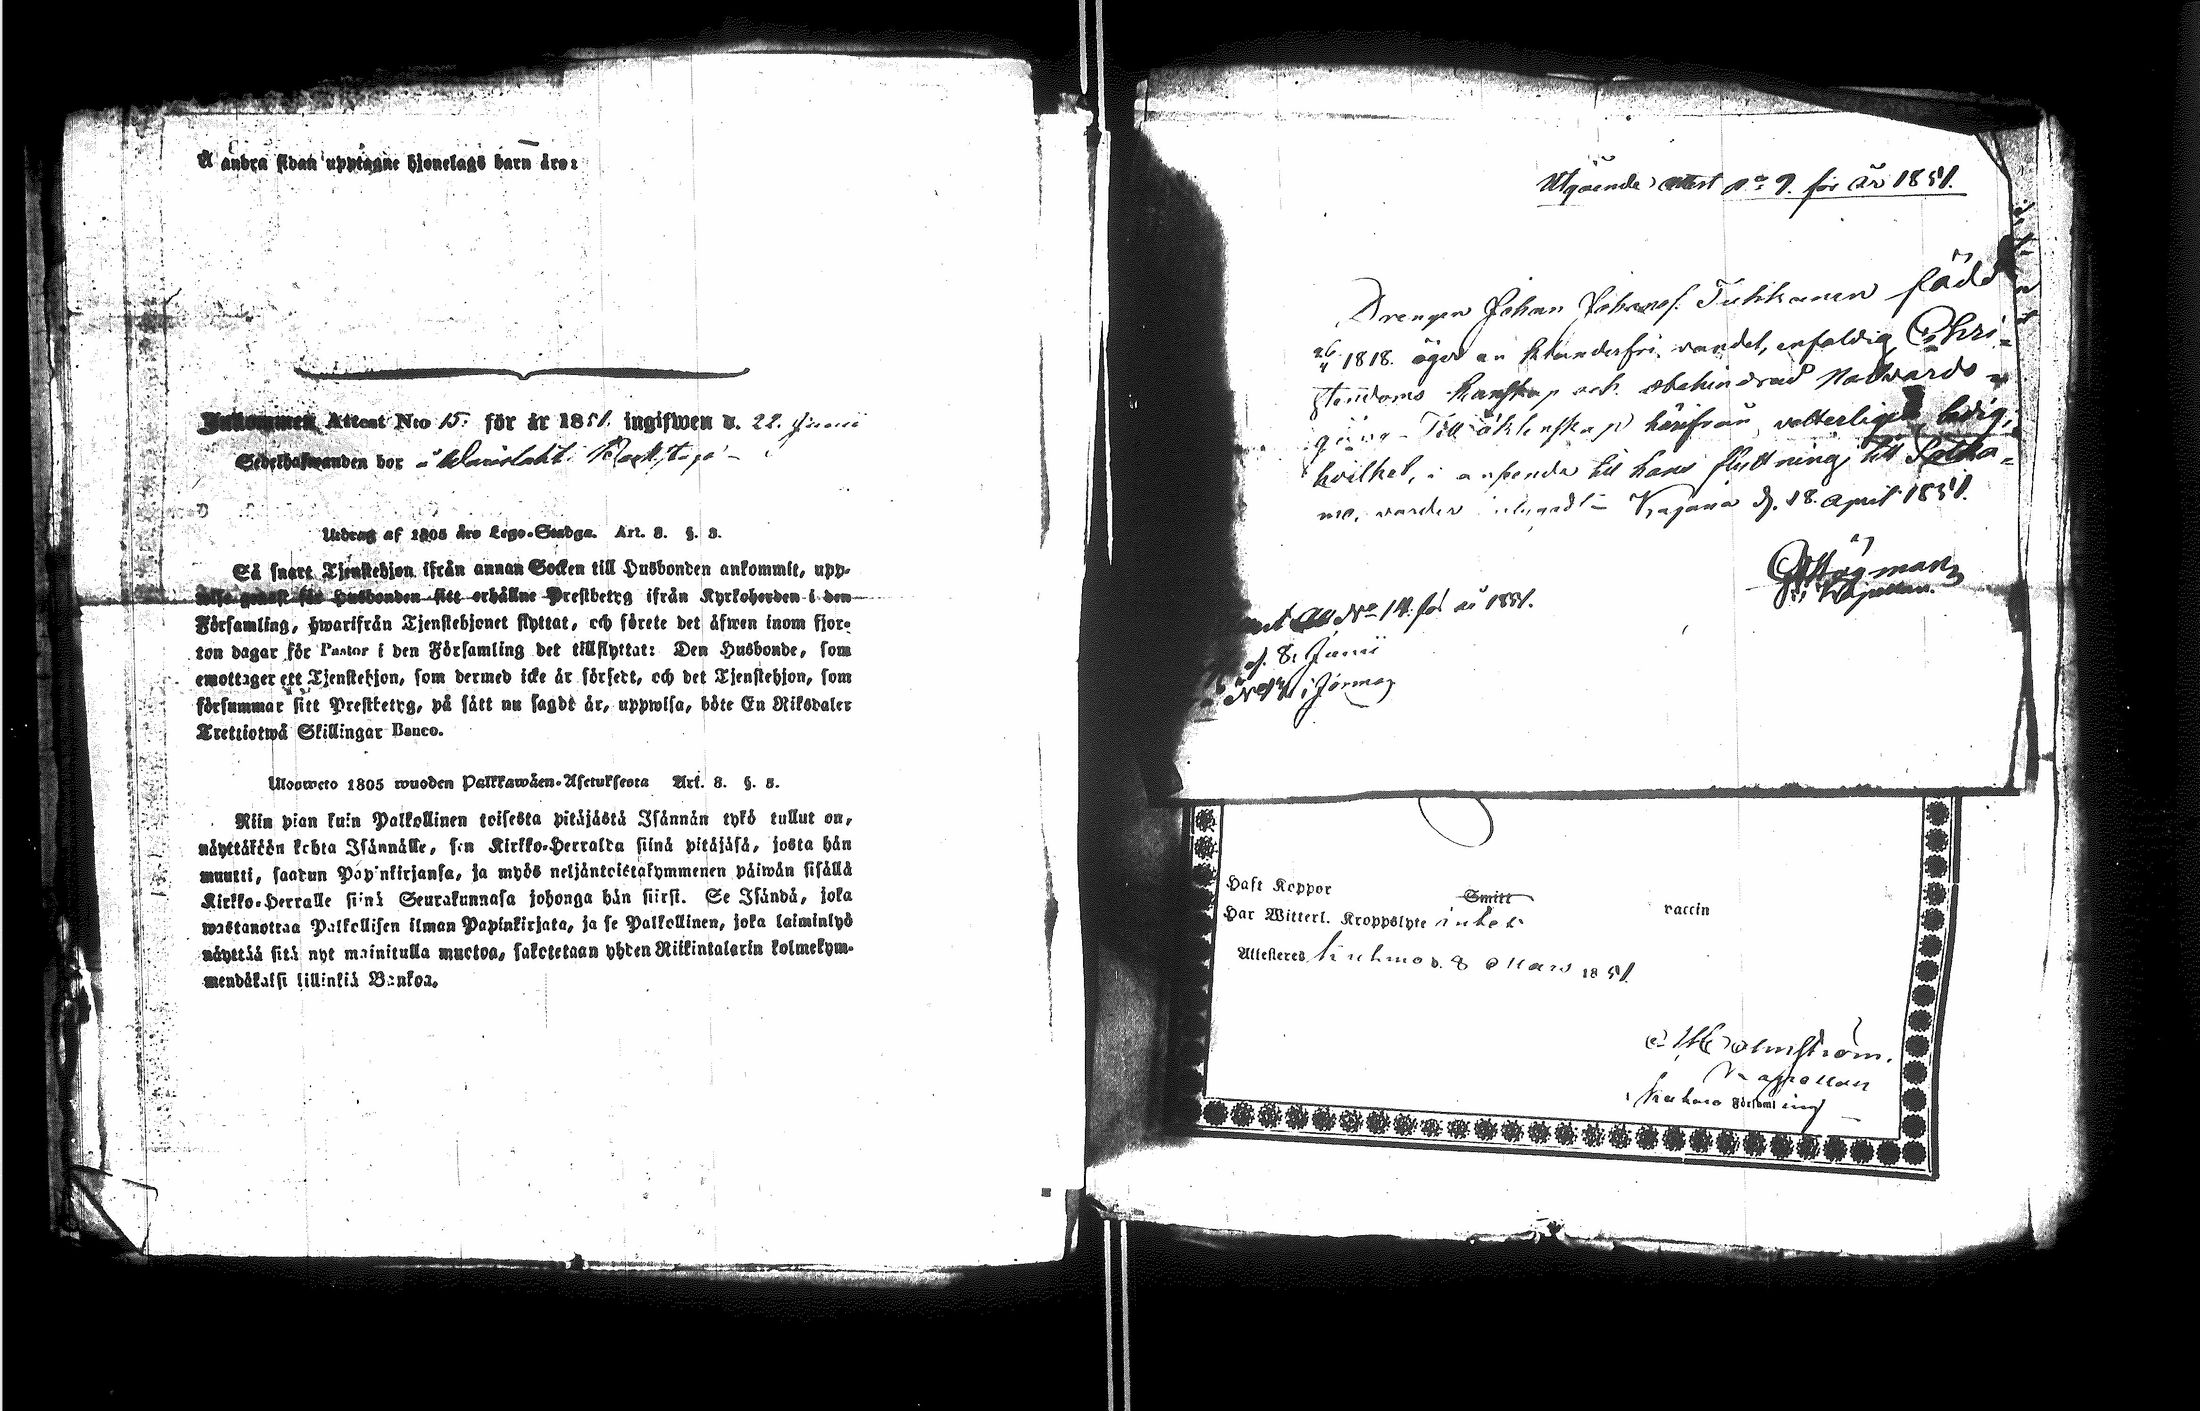 Å andra sidan upptagne hjonelags barn äro:
Inkommen Attest Nto 15. för år 1851. ingifwen d. 22. Junii
Sedelhafwanden bor å
Utdrag af 1805 års Lego-Stadga. Art. 3. §. 3.
Så snart Tjenstehjon ifrån annan Socken till Husbonden ankommit, upp-
wise genast för Husbonden sitt erhållne Prestbetyg ifrån Kyrkoherden i den
Församling, hwarifrån Tjenstehjonet flyttat, och förete det äfwen inom fjor-
ton dagar för Pastor i den Församling det tillflyttat: Den Husbonde, som
emottager ett Tjenstehjon, som dermed icke är försedt, och det Tjenstehjon, som
försummar sitt Prestbetyg, på sätt nu sagdt är, uppwisa, böte En Riksdaler
Trettiotwå Skillingar Banco.
Ulosweto 1805 wuoden Palkkawäen-Asetuksesta Art. 3. §. 3.
Niin pian kuin Palkollinen toisesta pitäjästä Isännän tykö tullut on,
näyttäköön kohta Isännälle, sen Kirkko-Herralta siinä pitäjäsä, josta hän
muutti, saadun Papinkirjansa, ja myös neljäntoistakymmenen päiwän sisällä
Kirkko-Herralle siinä Seurakunnasa johonga hän siirsi. Se Isändä, joka
wastanottaa Palkollisen ilman Papinkirjata, ja se Palkollinen, joka laiminlyö
näyttää sitä nyt mainitulla muotoa, sakotetaan yhden Riikintalarin kolmekym-
mendäkaksi killinkiä Bankoa.
Utgående attest no 9. för år 1851.
Drengen Johan Johansf. Tukkanen född
26 1818. äger en klanderfri vandel, enfaldig Chri-
stendoms kunskap och obehindrad Nattvards-
gång. Till äktenskap härifrån, vetterligen ledig,
hvilket, i anseende till hans flyttning till Sotka-
mo, varder Kajana d. 18. April 1851.
Högman
Kapellan.
Att No 14. för år 1851.
d. 8. Junii
i Jormas
Haft Koppor Smitt vaccin
Har Witterl. Kroppslyte intet
Attesteres Kuhmo d. 8 Mars 1851.
Holmström.
Kapellan
i Kuhmo Församling